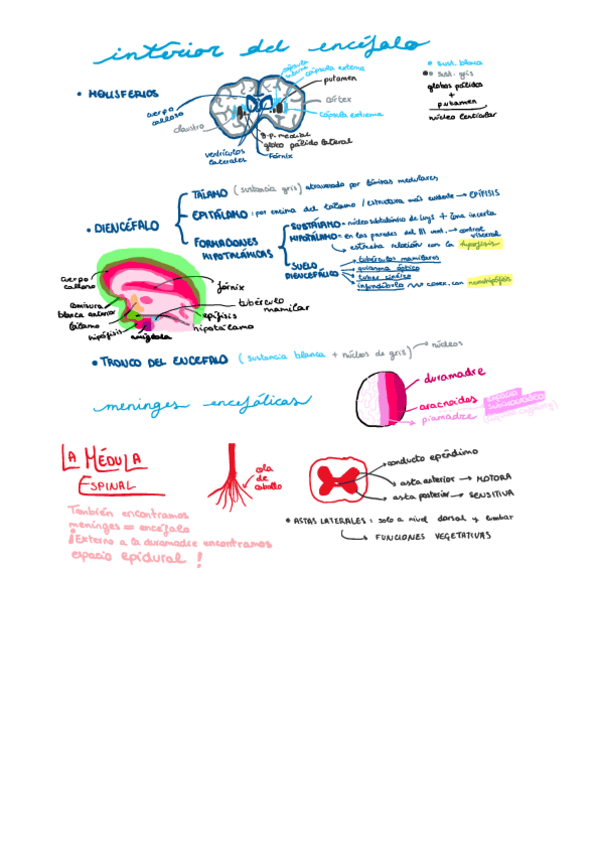 interior del encéfalo
• HEMISFERIOS
cápsula interna
cápsula externa
putamen
córtex
cápsula extrema
cuerpo calloso
claustro
g.p. medial
globo pálido lateral
fórnix
ventrículos laterales
• sust. blanca
• sust. gris
globos pálidos
+
putamen
núcleo lenticular
• DIENCÉFALO
TÁLAMO (sustancia gris) atravesado por láminas medulares
EPITÁLAMO: por encima del tálamo / estructura más evidente → EPÍFISIS
FORMACIONES HIPOTALÁMICAS
SUBTÁLAMO - núcleo subtalámico de Luys + zona incerta
HIPOTÁLAMO - en las paredes del III vent. → control visceral
↳ estrecha relación con la hipófisis
SUELO DIENCEFÁLICO
tubérculos mamilares
quiasma óptico
tuber cinéreo
infundíbulo conex. con neurohipófisis
cuerpo calloso
comisura blanca anterior
tálamo
hipófisis
amígdala
fórnix
tubérculo mamilar
epífisis
hipotálamo
• TRONCO DEL ENCÉFALO (sustancia blanca + núcleos de gris) → núcleos
meninges encefálicas
duramadre
aracnoides
espacio subaracnoideo
piamadre
LA MÉDULA
ESPINAL
cola de caballo
conducto epéndimo
asta anterior → MOTORA
asta posterior → SENSITIVA
También encontramos
meninges = encéfalo
¡Externo a la duramadre encontramos
espacio epidural!
* ASTAS LATERALES: solo a nivel dorsal y lumbar
↳ FUNCIONES VEGETATIVAS